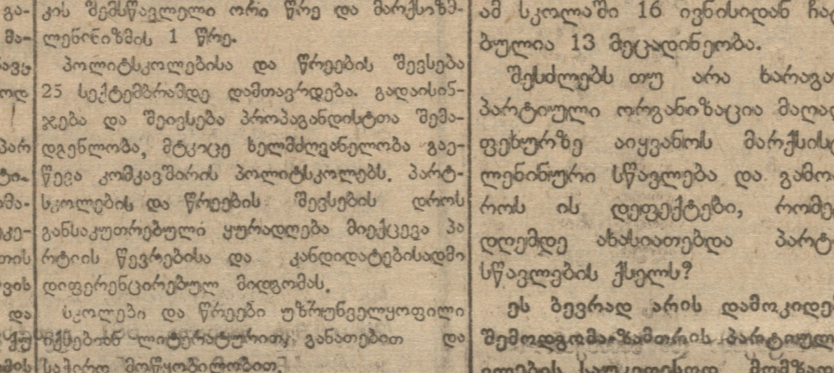 კის შემსწავლელი ორი წრე და მარქსიზმ-
ლენინიზმის 1 წრე.
პოლიტსკოლებისა და წრეების შევსება
25 სექტემბრამდე დამთავრდება. გადაისინ-
ჯება და შეივსება პროპაგანდისტთა შემა-
დგენლობა, მტკიცე ხელმძღვანელობა გაე-
წევა კომკავშირის პოლიტსკოლებს. პარტ-
სკოლების და წრეების შევსების დროს
განსაკუთრებული ყურადღება მიექცევა პა
რტიის წევრებისა და კანდიდატებისადმი
დიფერენცირებულ მიდგომას.
სკოლები და წრეები უზრუნველყოფილი
იქნებიან ლიტერატურით, განათებით და
საჭირო მოწყობილობით.
ამ სკოლაში 16 ივნისიდან ჩა
ბულია 13 მეცადინეობა.
შესძლებს თუ არა ხარაგა
პარტიული ორგანიზაცია მაღა
ფეხურზე აიყვანოს მარქსის
ლენინური სწავლება და გამო
როს ის დეფექტები, რომე
დღემდე ახასიათებდა პარტ
სწავლების ქსელს?
ეს ბევრად არის დამოკიდე
შემოდგომა-ზამთრის პარტიულ